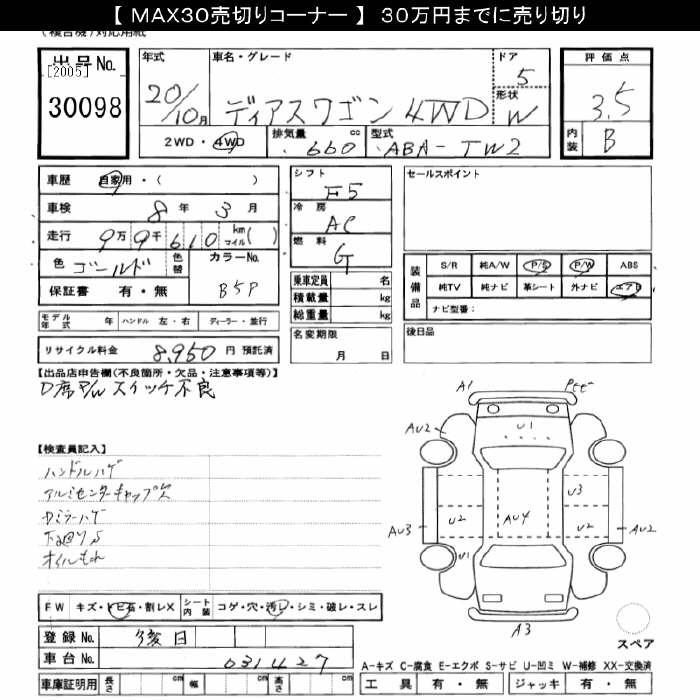 【 MAX30売切りコーナー 】 30万円までに売り切り
(複合機)対応用紙
出品No.
[2005]
30098
年式
20/10月
車名・グレード
ディアスワゴン 4WD
ドア
5
形状
W
評価点
3.5
内装
B
2WD・4WD
排気量
660 cc
型式
ABA-TW2
車歴 自家用・( )
車検 8年 3月
走行 9万9千610 km マイル( )
色 ゴールド
色替
カラーNo.
B5P
保証書 有・無
シフト
F5
冷房
AC
燃料
G
乗車定員 名
積載量 kg
総重量 kg
セールスポイント
装備品
S/R 純A/W P/S P/W ABS
純TV 純ナビ 革シート 外ナビ エアB
ナビ型番:
モデル年式 年 ハンドル 左・右 ディーラー・並行
リサイクル料金 8,950 円 預託済
名変期限
月 日
後日品
【出品店申告欄(不良箇所・欠品・注意事項等)】
D席P/Wスイッチ不良
【検査員記入】
ハンドルハゲ
アルミセンターキャップ欠
オイルもれ
A1
AU2
U1
U3
U2
AU4
U2
AU3
AU2
U1
A3
スペア
FW キズ・トビ石・割レX
シート内装
コゲ・穴・汚レ・シミ・破レ・スレ
登録No.
後日
車台No.
031427
車庫証明用 長さ cm 幅 cm 高さ cm
A-キズ C-腐食 E-エクボ S-サビ U-凹ミ W-補修 XX-交換済
工具 有・無 ジャッキ 有・無